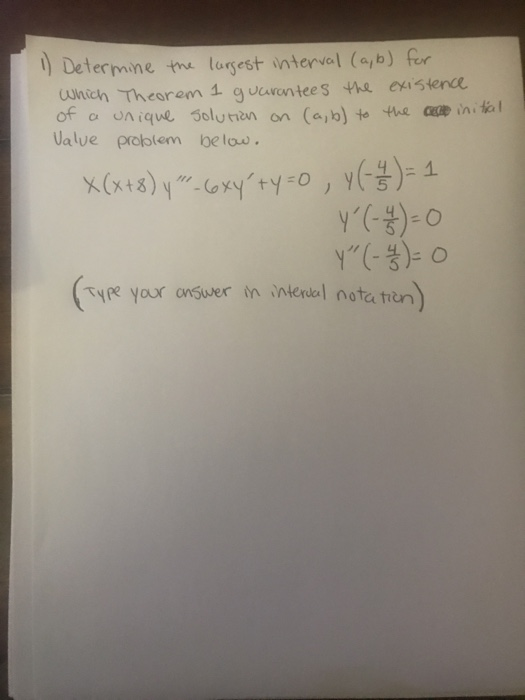 1) Determine the largest interval (a,b) for
which Theorem 1 guarantees the existence
of a unique solution on (a,b) to the initial
Value problem below.
x(x+8)y'''-6xy'+y=0, y(-4/5)=1
y'(-4/5)=0
y''(-4/5)=0
(Type your answer in interval notation)